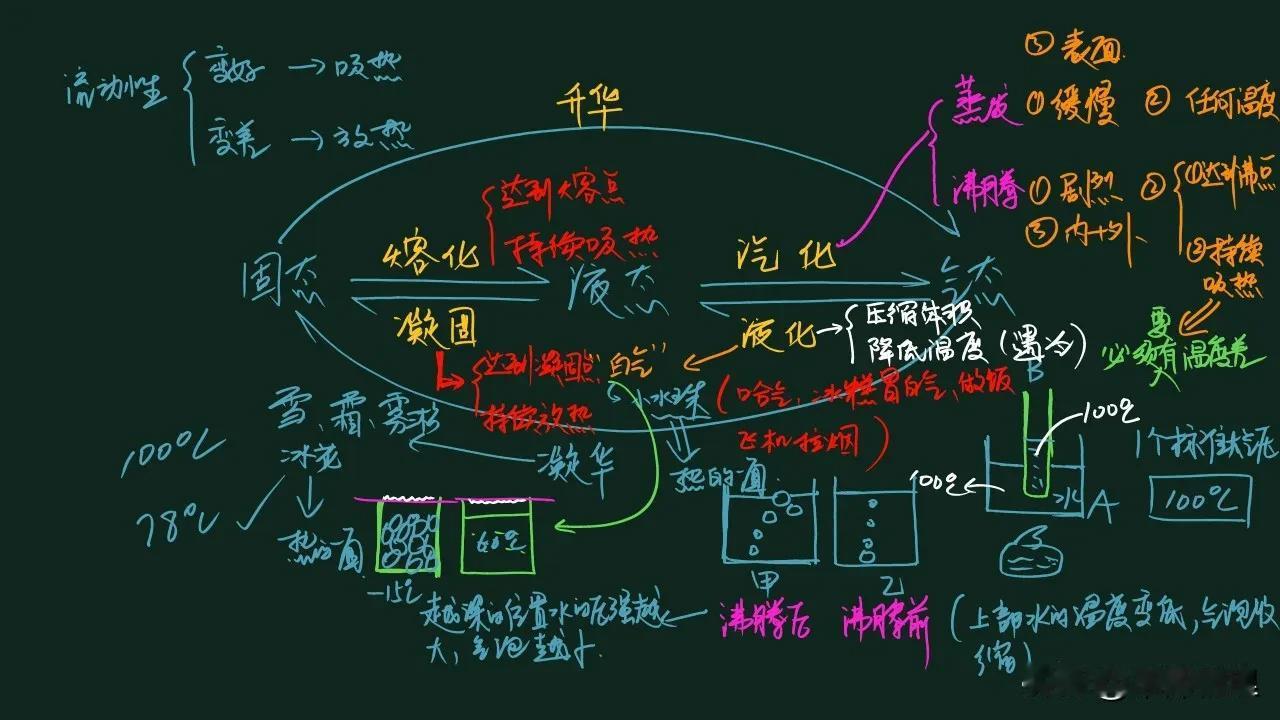 ③ 表面
流动性
变好 → 吸热
变差 → 放热
升华
蒸发 ① 缓慢 ② 任何温度
沸腾 ① 剧烈 ② ①达到沸点
③ 内+外
②持续
吸热
达到熔点
持续吸热
固态
熔化
液态
汽化
气态
凝固
达到凝固点
持续放热
液化 → 压缩体积
降低温度(遇冷)
要
必须有温度差
大
"白气"
小水珠
(哈气,冰糕冒白气,做饭
飞机拉烟)
热的一面
雪、霜、雾凇
冰花
凝华
热的一面
100℃
78℃
-15℃
60℃
B
100℃
100℃
水
A
1个标准大气压
100℃
甲
乙
沸腾后
沸腾前
(上部水的温度变低,气泡收
缩)
越深的位置水的压强越
大,气泡越小.